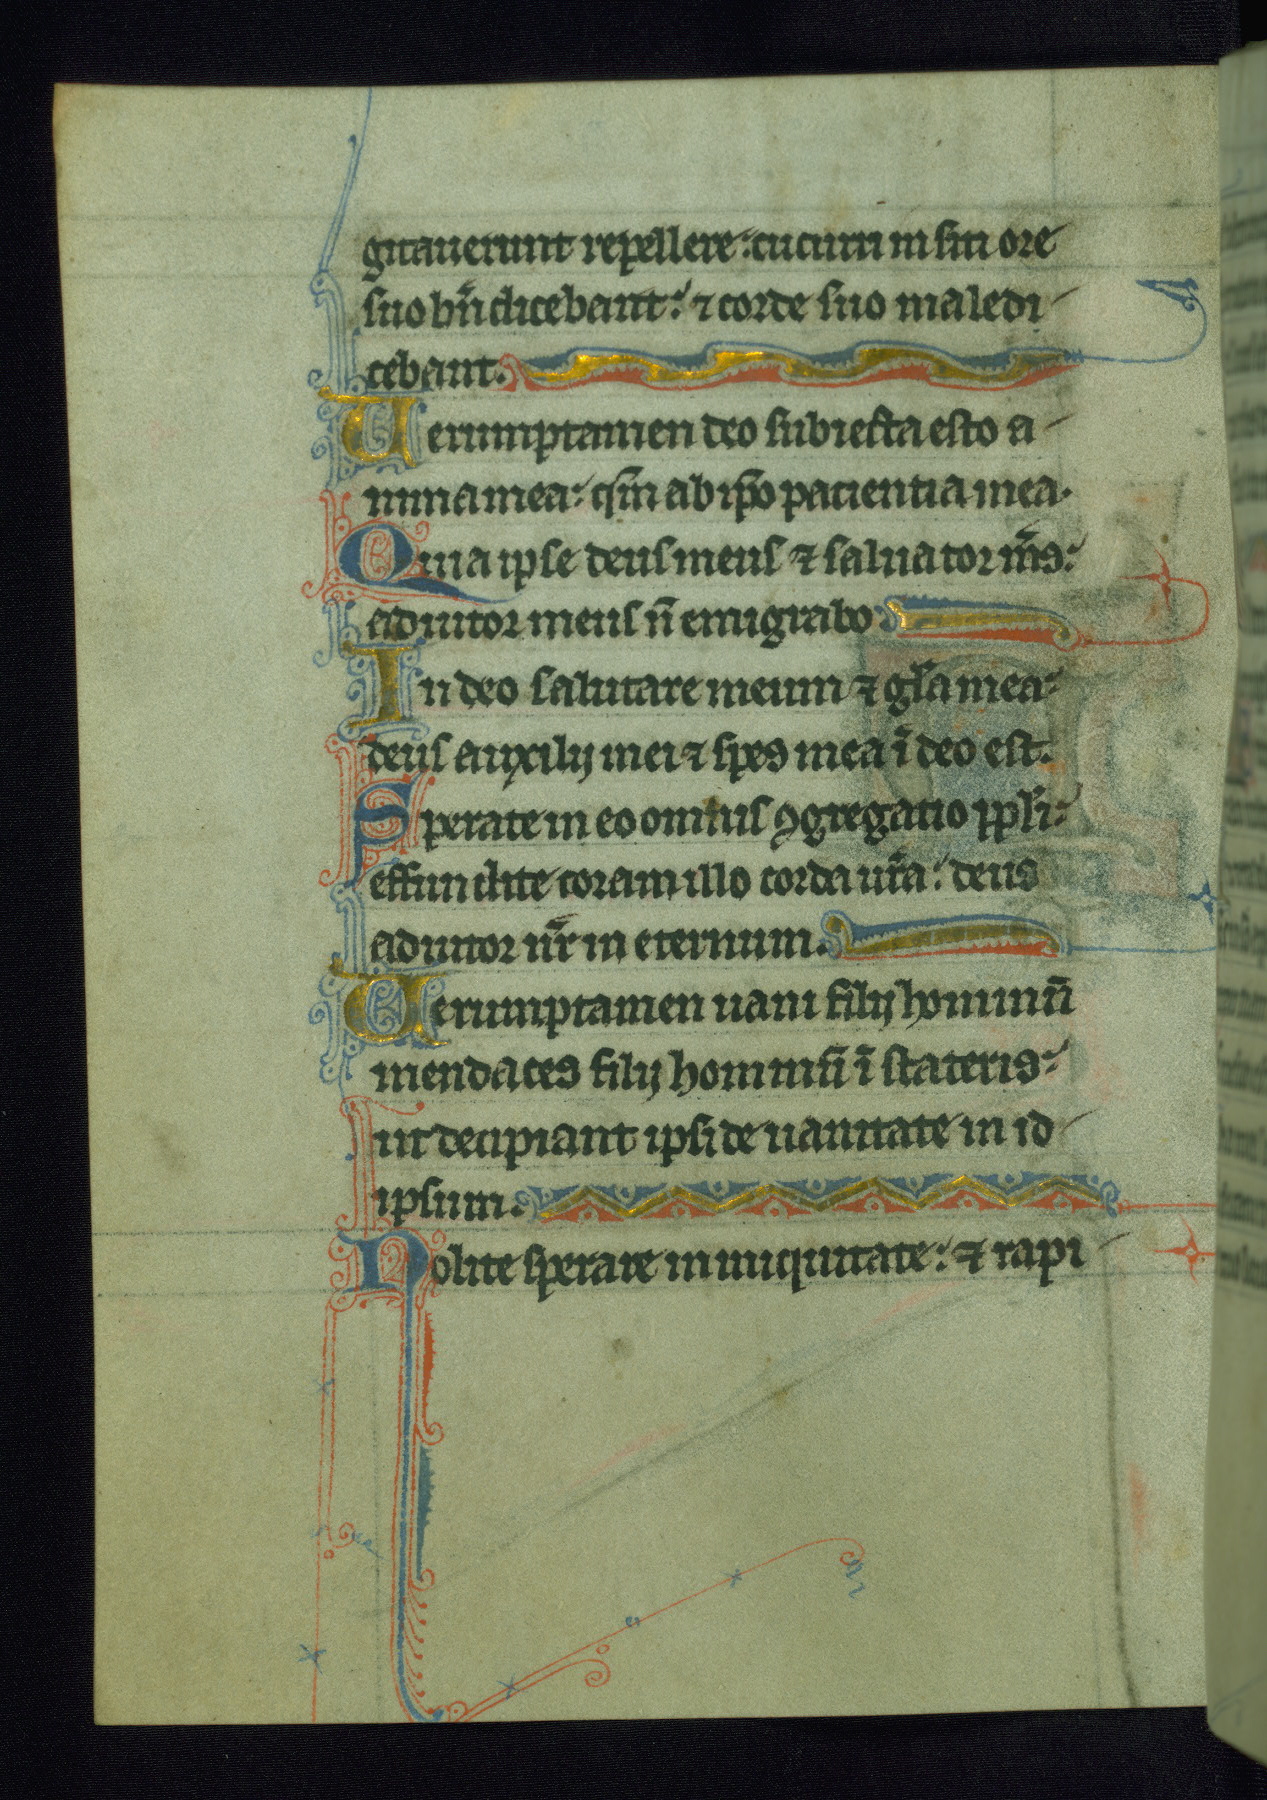 gitauerunt repellere: cucurri in siti ore
suo bn̄dicebant: ⁊ corde suo maledi
cebant.
Uerumptamen deo subiecta esto a
nima mea: qm̄ ab ip̄o pacientia mea.
Quia ipse deus meus ⁊ saluator m̄s:
adiutor meus n̄ emigrabo.
In deo salutare meum ⁊ gl̄a mea:
deus auxilij mei ⁊ spes mea ī deo est.
Sperate in eo omnis ꝯgregatio pp̄li:
effundite coram illo corda ur̄a: deus
adiutor nr̄ in eternum.
Uerumptamen uani filij hominū
mendaces filij hominū ī stateris:
ut decipiant ipsi de uanitate in id
ipsum.
Nolite sperare in iniquitate: ⁊ rapi